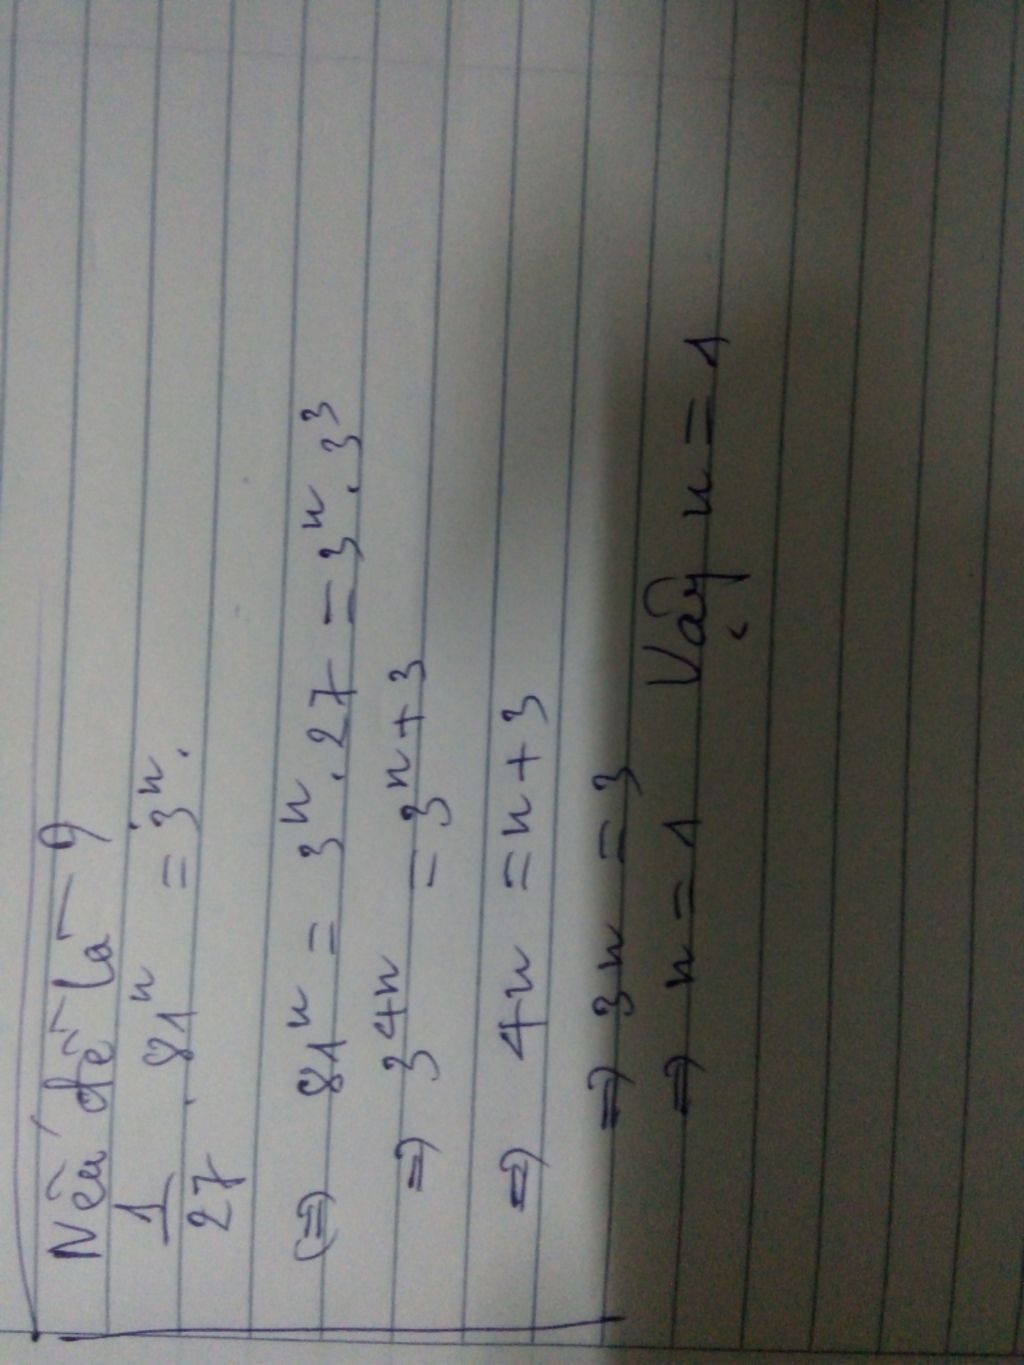 Nếu đề là 9
1/27 . 81ⁿ = 3ⁿ.
(=) 81ⁿ = 3ⁿ . 27 = 3ⁿ . 3³
=) 3⁴ⁿ = 3ⁿ⁺³
=) 4n = n + 3
=) 3n = 3
=) n = 1 Vậy n = 1